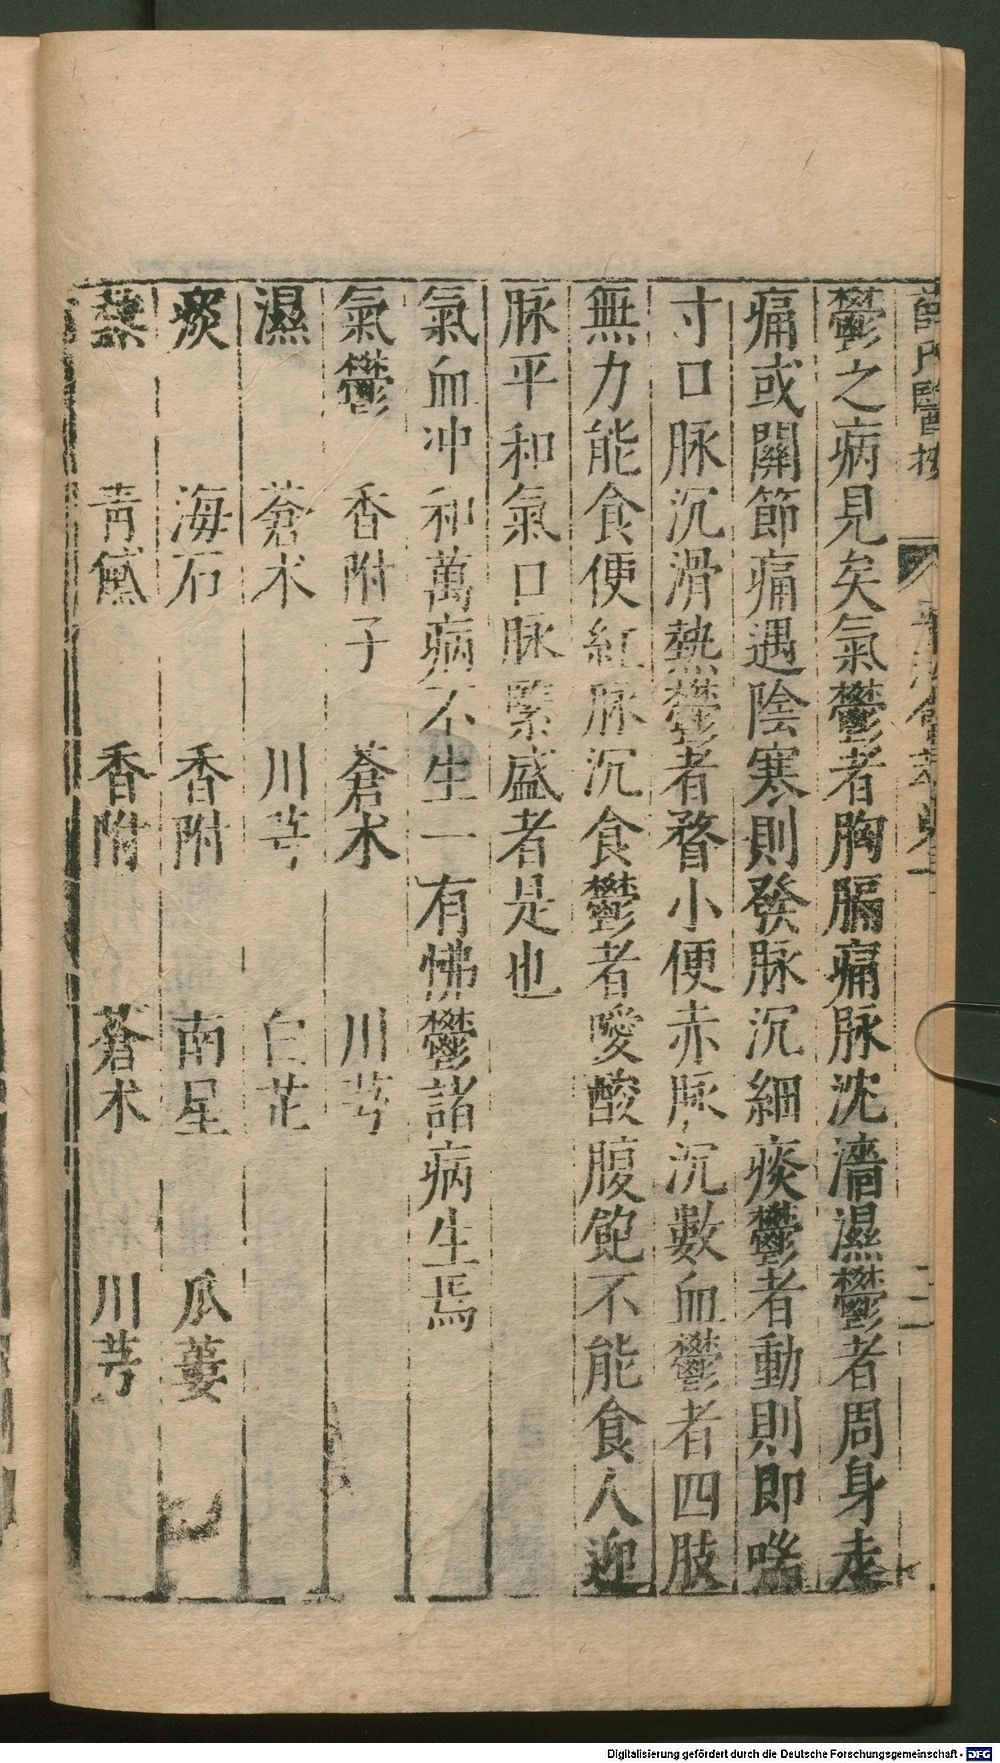 薛氏醫按 平治會萃卷 二
鬱之病見矣氣鬱者胸膈痛脉沈濇濕鬱者周身走
痛或關節痛遇陰寒則發脉沉細痰鬱者動則即喘
寸口脉沉滑熱鬱者瞀小便赤脉沉數血鬱者四肢
無力能食便紅脉沉食鬱者噯酸腹飽不能食人迎
脉平和氣口脉緊盛者是也
氣血冲和萬病不生一有怫鬱諸病生焉
氣鬱 香附子 蒼术 川芎
濕 蒼术 川芎 白芷
痰 海石 香附 南星 瓜蔞
熱 青黛 香附 蒼术 川芎
Digitalisierung gefördert durch die Deutsche Forschungsgemeinschaft - DFG